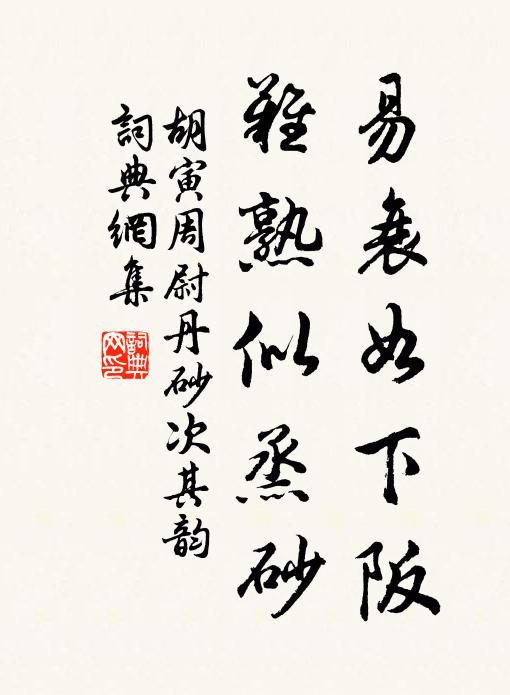 易衰如下阪
難熟似烝砂
胡寅周尉丹砂次其韵
詞典網集
詞典网印